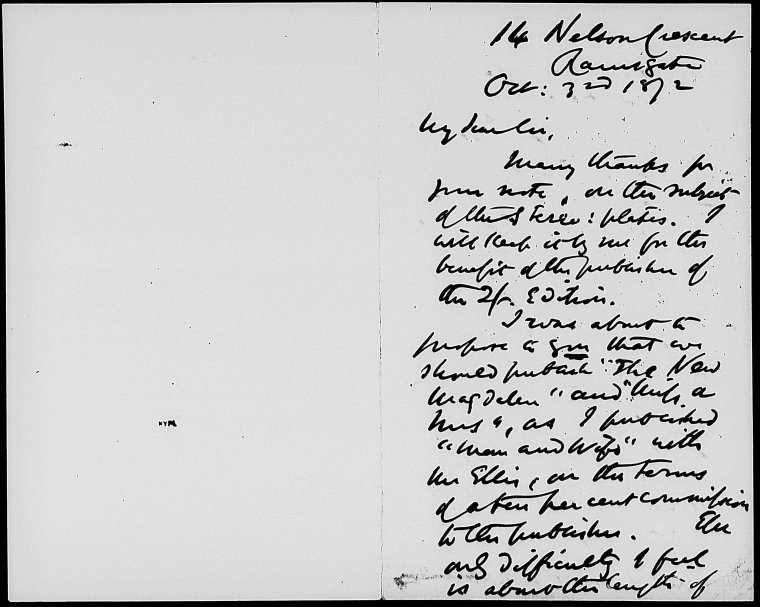 14 Nelson Crescent
Ramsgate
Oct: 3rd 1872
My dear Sir,
Many thanks for
your note, on the subject
of the Stereo: plates. I
will keep it by me for the
benefit of the publisher of
the 2/. Edition.
I was about to
propose to you that we
should publish "The New
Magdalen" and "Miss or
Mrs", as I published
"Man and Wife" with
Mr Ellis, on the terms
of a ten per cent commission
to the publisher. The
only difficulty I feel
is about the length of
NYPL